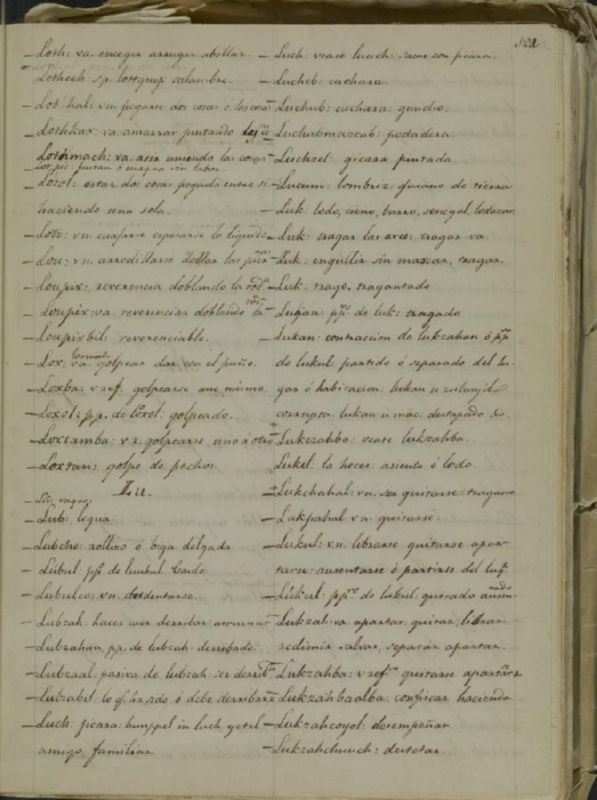 121
Loth: va. encoger arrugar abollar.
Lothech: sp. calambre.
Lot hal: vn. pegarse dos cosas o las cosas
Lothkax: va. amarrar juntando
Lothmach: va. asir uniendo las cosas
Lotol: estar dos cosas pegadas entre si
haciendo una sola.
Lotz: vn. cuajarse espesarse lo liquido
Lou: vn. arrodillarse doblar las
Loupix: reverencia doblando la rodª
Loupix: va. reverenciar doblando la rodª
Loupixbil: reverenciable.
Lox: va. golpear dar con el puño.
Loxba: v ref. golpearse uno mismo
Loxol: pp. de loxol: golpeado.
Loxtamba: v r. golpearse uno á otro
Loxtan: golpe de pechos
Lu.
Lub: legua
Lubche: rollizo ó biga delgada
Lubul: ppº de luubul Caido
Lubulco: vn. desdentarse.
Lubzah: hacer caer derribar arruinar
Lubzahan pp. de lubzah: derribado.
Lubzaal, pasiva de lubzah: ser
Lubzabil lo q. ha sido ó debe derribarse
Luch: jicara: huuppel in luch yetel
amigo familiar
Luch: vease luuch: sacar con jicara.
Lucheb: cuchara.
Luchub: cuchara: gancho.
Luchubmazcab: podadera.
Luchzel: gicara pintada.
Lucum: lombriz gusano de tierra
Luk: lodo, cieno, barro, senegal, lodazar
Luk: tragar las aves: tragar va.
Luk: engullir sin mascar, tragar.
Luk: trago, tragantado
Lukan: ppº de luk: tragado
Lukan: contraccion de lukzahan ó ppº
de lukul: partido ó separado del lu-
gar ó habitacion: lukan u
lukan u mac: destapado
Lukzahba: vease lukzahba.
Lukil: la heces: asiento ó lodo.
Lukchahal: vn. quitarse: tragarse
Lukpahal v n. quitarse.
Lukul: v n. librarse quitarse apar-
tarse: ausentarse ó partirse del lug.
Lukul: ppº de lukul quitado ausentado
Lukzah: va. apartar quitar, librar
redimir salvar, separar apartar.
Lukzahba: v refº quitarse apartarse
Lukzahbaalba: confiscar haciendo
Lukzahcoyol: desempeñar
Lukzahchuuch: destetar.